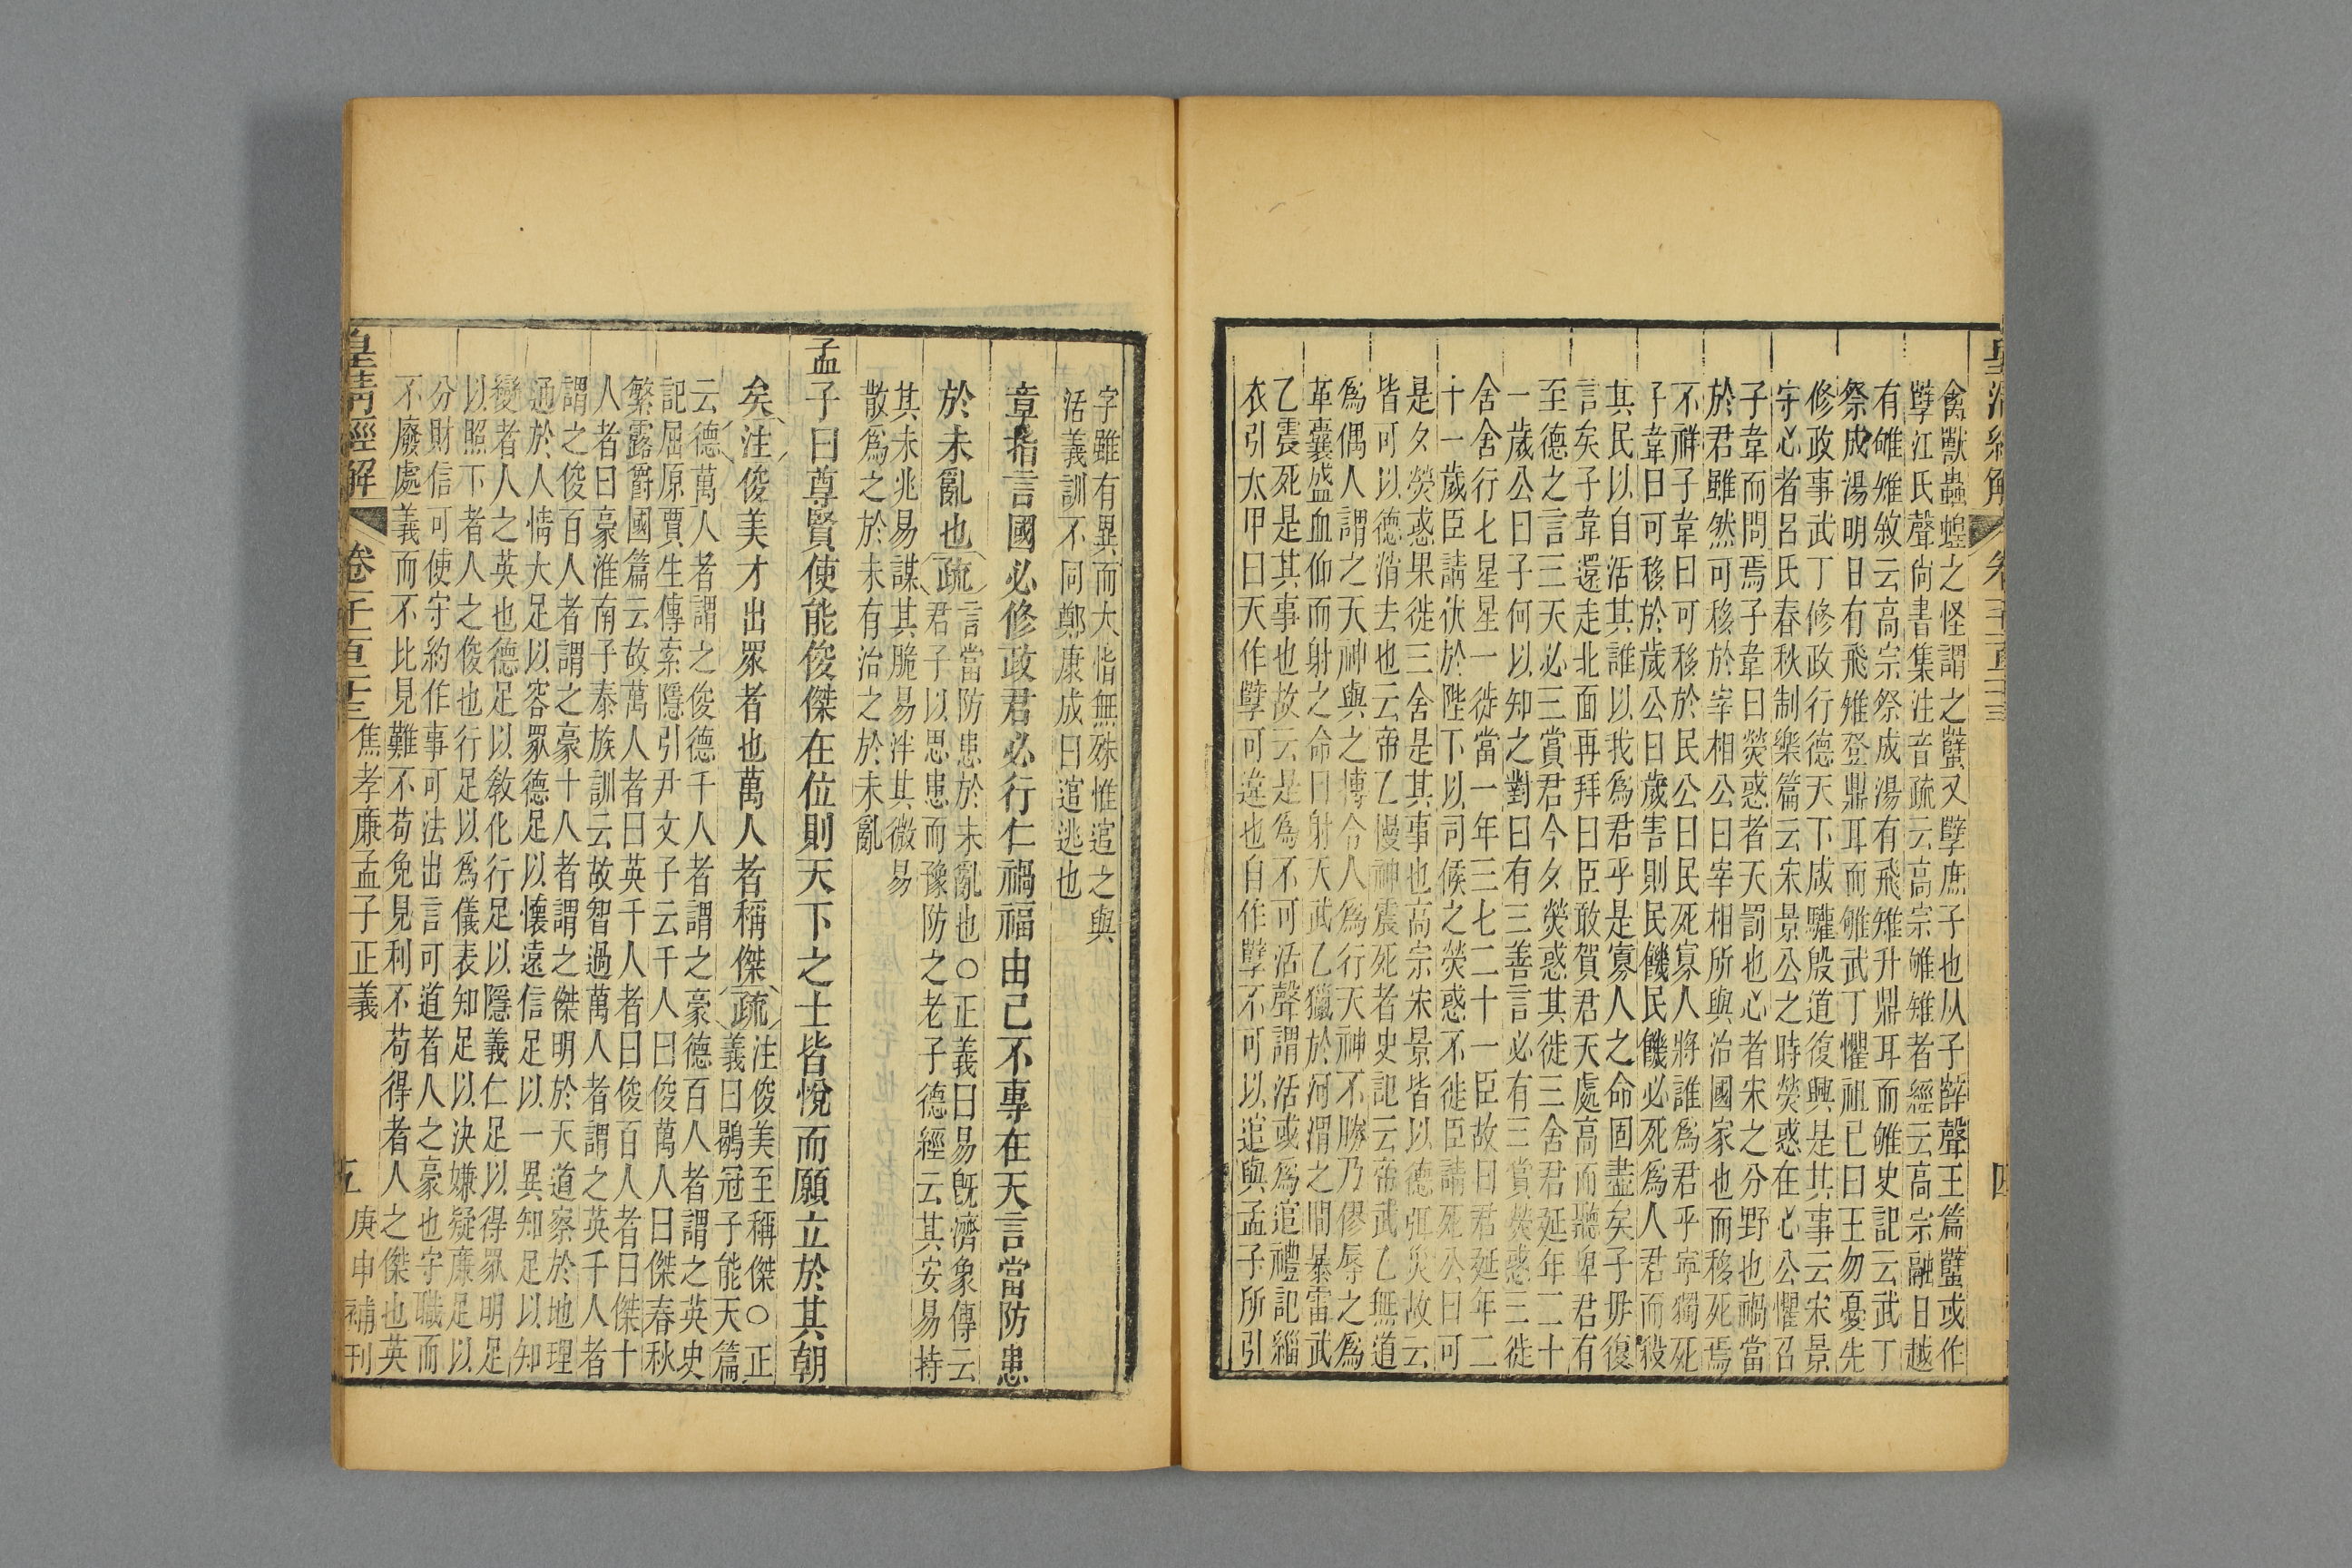 皇清經解
卷一千一百二十三
四
禽獸蟲蝗之怪謂之蠥又孼庶子也从子辥聲王篇蠥或作
孼江氏聲尙書集注音疏云高宗雊雉者經云高宗融日越
有雊雉敘云高宗祭成湯有飛雉升鼎耳而雊史記云武丁
祭成湯明日有飛雉登鼎耳而雊武丁懼祖已曰王勿憂先
修政事武丁修政行德天下咸驩殷道復興是其事云宋景
守心者呂氏春秋制樂篇云宋景公之時熒惑在心公懼召
子韋而問焉子韋曰熒惑者天罰也心者宋之分野也禍當
於君雖然可移於宰相公曰宰相所與治國家也而移死焉
不祥子韋曰可移於民公曰民死寡人將誰爲君乎寧獨死
子韋曰可移於歲公曰歲害則民饑民饑必死爲人君而殺
其民以自活其誰以我爲君乎是寡人之命固盡矣子毋復
言矣子韋還走北面再拜曰臣敢賀君天處高而聽卑君有
至德之言三天必三賞君今夕熒惑其徙三舍君延年二十
一歲公曰子何以知之對曰有三善言必有三賞熒惑三徙
舍舍行七星星一徙當一年三七二十一臣故曰君延年二
十一歲臣請伏於陛下以司候之熒惑不徙臣請死公曰可
是夕熒惑果徙三舍是其事也高宗宋景皆以德弭災故云
皆可以德消去也云帝乙慢神震死者史記云帝武乙無道
爲偶人謂之天神與之博令人爲行天神不勝乃僇辱之爲
革囊盛血仰而射之命曰射天武乙獵於河渭之閒暴雷武
乙震死是其事也故云是爲不可活聲謂活或爲逭禮記緇
衣引太甲曰天作孼可違也自作孼不可以逭與孟子所引
字雖有異而大恉無殊惟逭之與
活義訓不同鄭康成曰逭逃也
章指言國必修政君必行仁禍福由己不專在天言當防患
於未亂也疏
言當防患於未亂也○正義曰易旣濟象傳云
君子以思患而豫防之老子德經云其安易持
其未兆易謀其脆易泮其微易
散爲之於未有治之於未亂
孟子曰尊賢使能俊傑在位則天下之士皆悅而願立於其朝
矣注俊美才出眾者也萬人者稱傑疏
注俊美至稱傑○正
義曰鶡冠子能天篇
云德萬人者謂之俊德千人者謂之豪德百人者謂之英史
記屈原賈生傳索隱引尹文子云千人曰俊萬人曰傑春秋
繁露爵國篇云故萬人者曰英千人者曰俊百人者曰傑十
人者曰豪淮南子泰族訓云故智過萬人者謂之英千人者
謂之俊百人者謂之豪十人者謂之傑明於天道察於地理
通於人情大足以容眾德足以懷遠信足以一異知足以知
變者人之英也德足以敎化行足以隱義仁足以得眾明足
以照下者人之俊也行足以爲儀表知足以決嫌疑廉足以
分財信可使守約作事可法出言可道者人之豪也守職而
不廢處義而不比見難不苟免見利不苟得者人之傑也英
皇清經解
卷一千一百二十三
焦孝廉孟子正義
五
庚申補刊